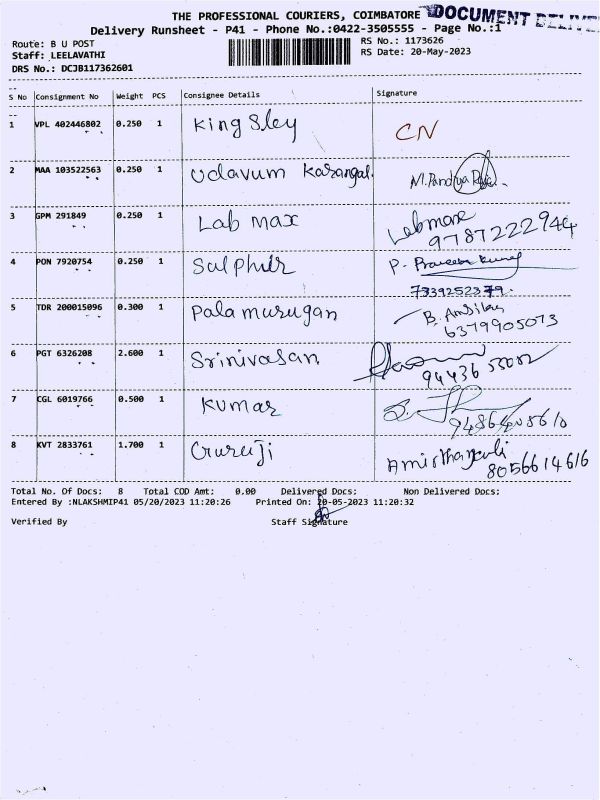 THE PROFESSIONAL COURIERS, COIMBATORE
DOCUMENT DELIVE
Delivery Runsheet - P41 - Phone No.:0422-3505555 - Page No.:1
Route: B U POST
RS No.: 1173626
Staff: LEELAVATHI
RS Date: 20-May-2023
DRS No.: DCJB117362601
S No Consignment No Weight PCS Consignee Details Signature
1 VPL 402446802 0.250 1 King Sley CN
2 MAA 103522563 0.250 1 Udavum Karangal. M.Pandiya
3 GPM 291849 0.250 1 Lab max Labmax
9787222944
4 PON 7920754 0.250 1 Sulphur P. Praveen Kumar
7339252379.
5 TDR 200015096 0.300 1 Pala murugan B.
6379905073
6 PGT 6326208 2.600 1 Srinivasan
94436
7 CGL 6019766 0.500 1 Kumar
8 KVT 2833761 1.700 1 Guruji
8056614616
Total No. Of Docs: 8 Total COD Amt: 0.00 Delivered Docs: Non Delivered Docs:
Entered By :NLAKSHMIP41 05/20/2023 11:20:26 Printed On: 20-05-2023 11:20:32
Verified By Staff Signature